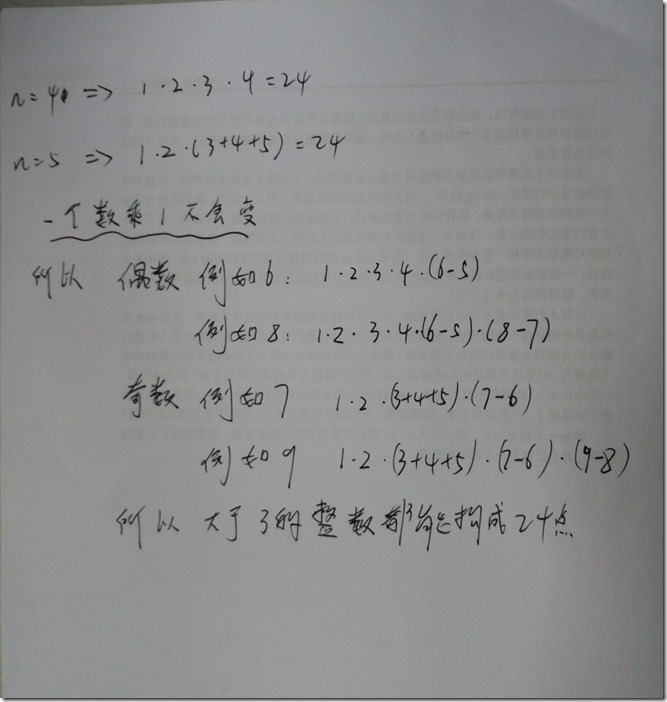 n=4 => 1·2·3·4=24
n=5 => 1·2·(3+4+5)=24
一个数乘1不会变
所以 偶数 例如6: 1·2·3·4·(6-5)
例如8: 1·2·3·4·(6-5)·(8-7)
奇数 例如7 1·2·(3+4+5)·(7-6)
例如9 1·2·(3+4+5)·(7-6)·(9-8)
所以 大于3的整数都能构成24点